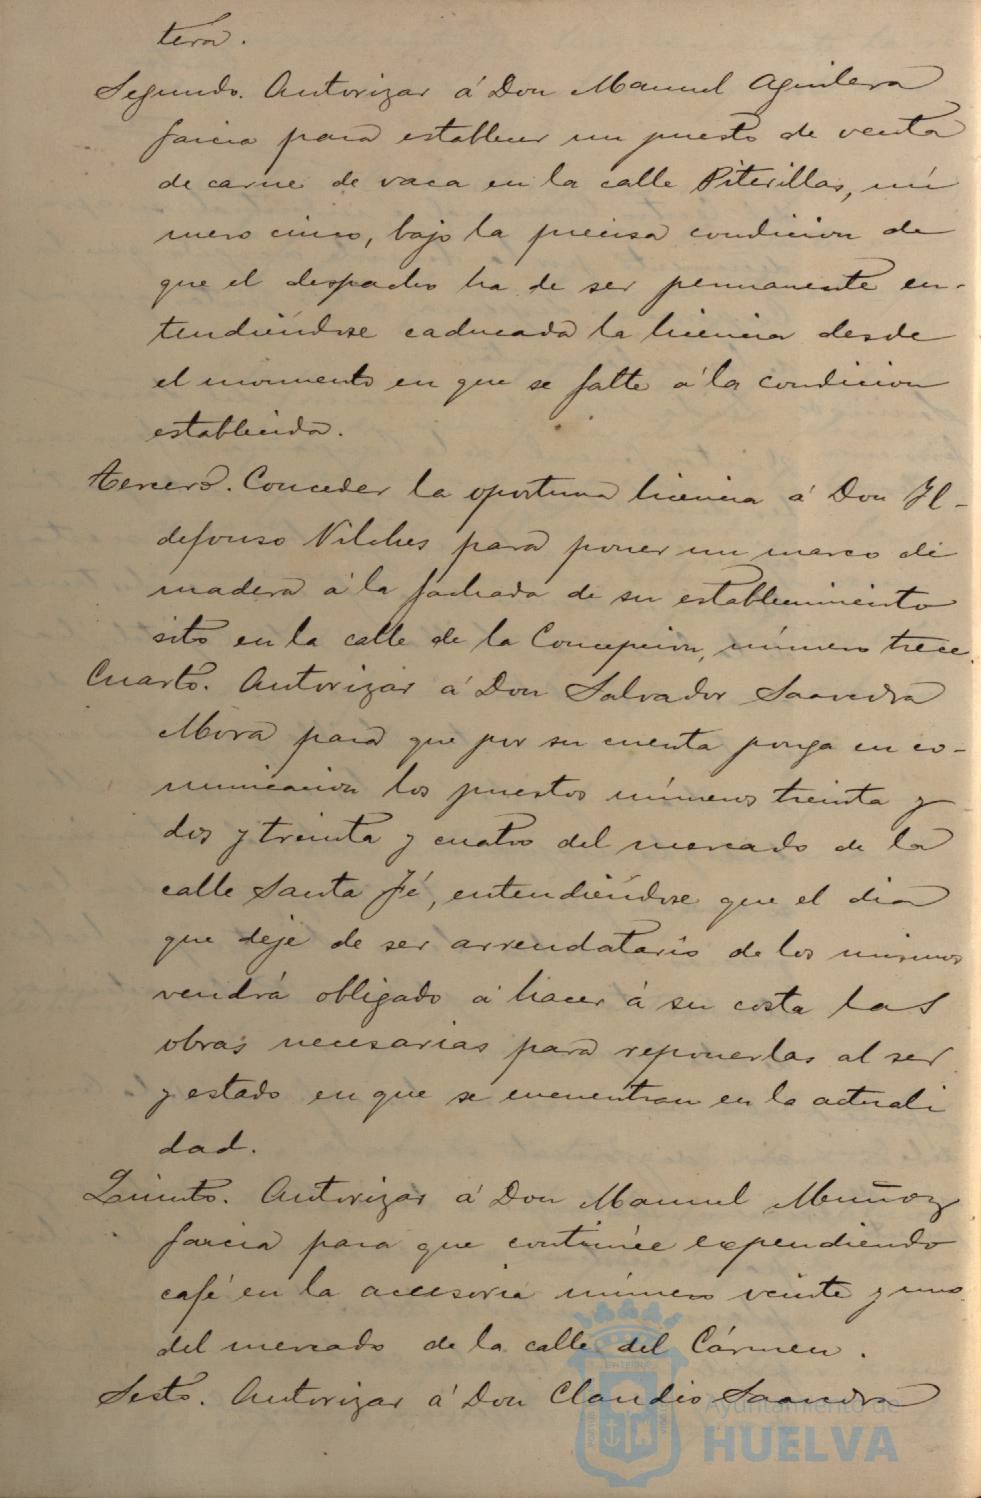 tera.
Segundo. Autorizar á Don Manuel Aguilera
García para establecer un puesto de venta
de carne de vaca en la calle Piterillas, nú
mero cinco, bajo la precisa condicion de
que el despacho ha de ser permanente en-
tendiéndose caducada la licencia desde
el momento en que se falte á la condicion
establecida.
Tercero. Conceder la oportuna licencia á Don Il-
defonso Vilches para poner un marco de
madera á la fachada de su establecimiento
sito en la calle de la Concepcion, número trece.
Cuarto. Autorizar á Don Salvador Saavedra
Mora para que por su cuenta ponga en co-
municacion los puestos números treinta y
dos y treinta y cuatro del mercado de la
calle Santa Fé, entendiéndose que el dia
que deje de ser arrendatario de los mismos
vendrá obligado á hacer á su costa las
obras necesarias para reponerlas al ser
y estado en que se encuentran en la actuali
dad.
Quinto. Autorizar á Don Manuel Muñoz
García para que continúe expendiendo
café en la accesoria número veinte y uno
del mercado de la calle del Cármen.
Sesto. Autorizar á Don Claudio Saavedra
Ayuntamiento de
HUELVA